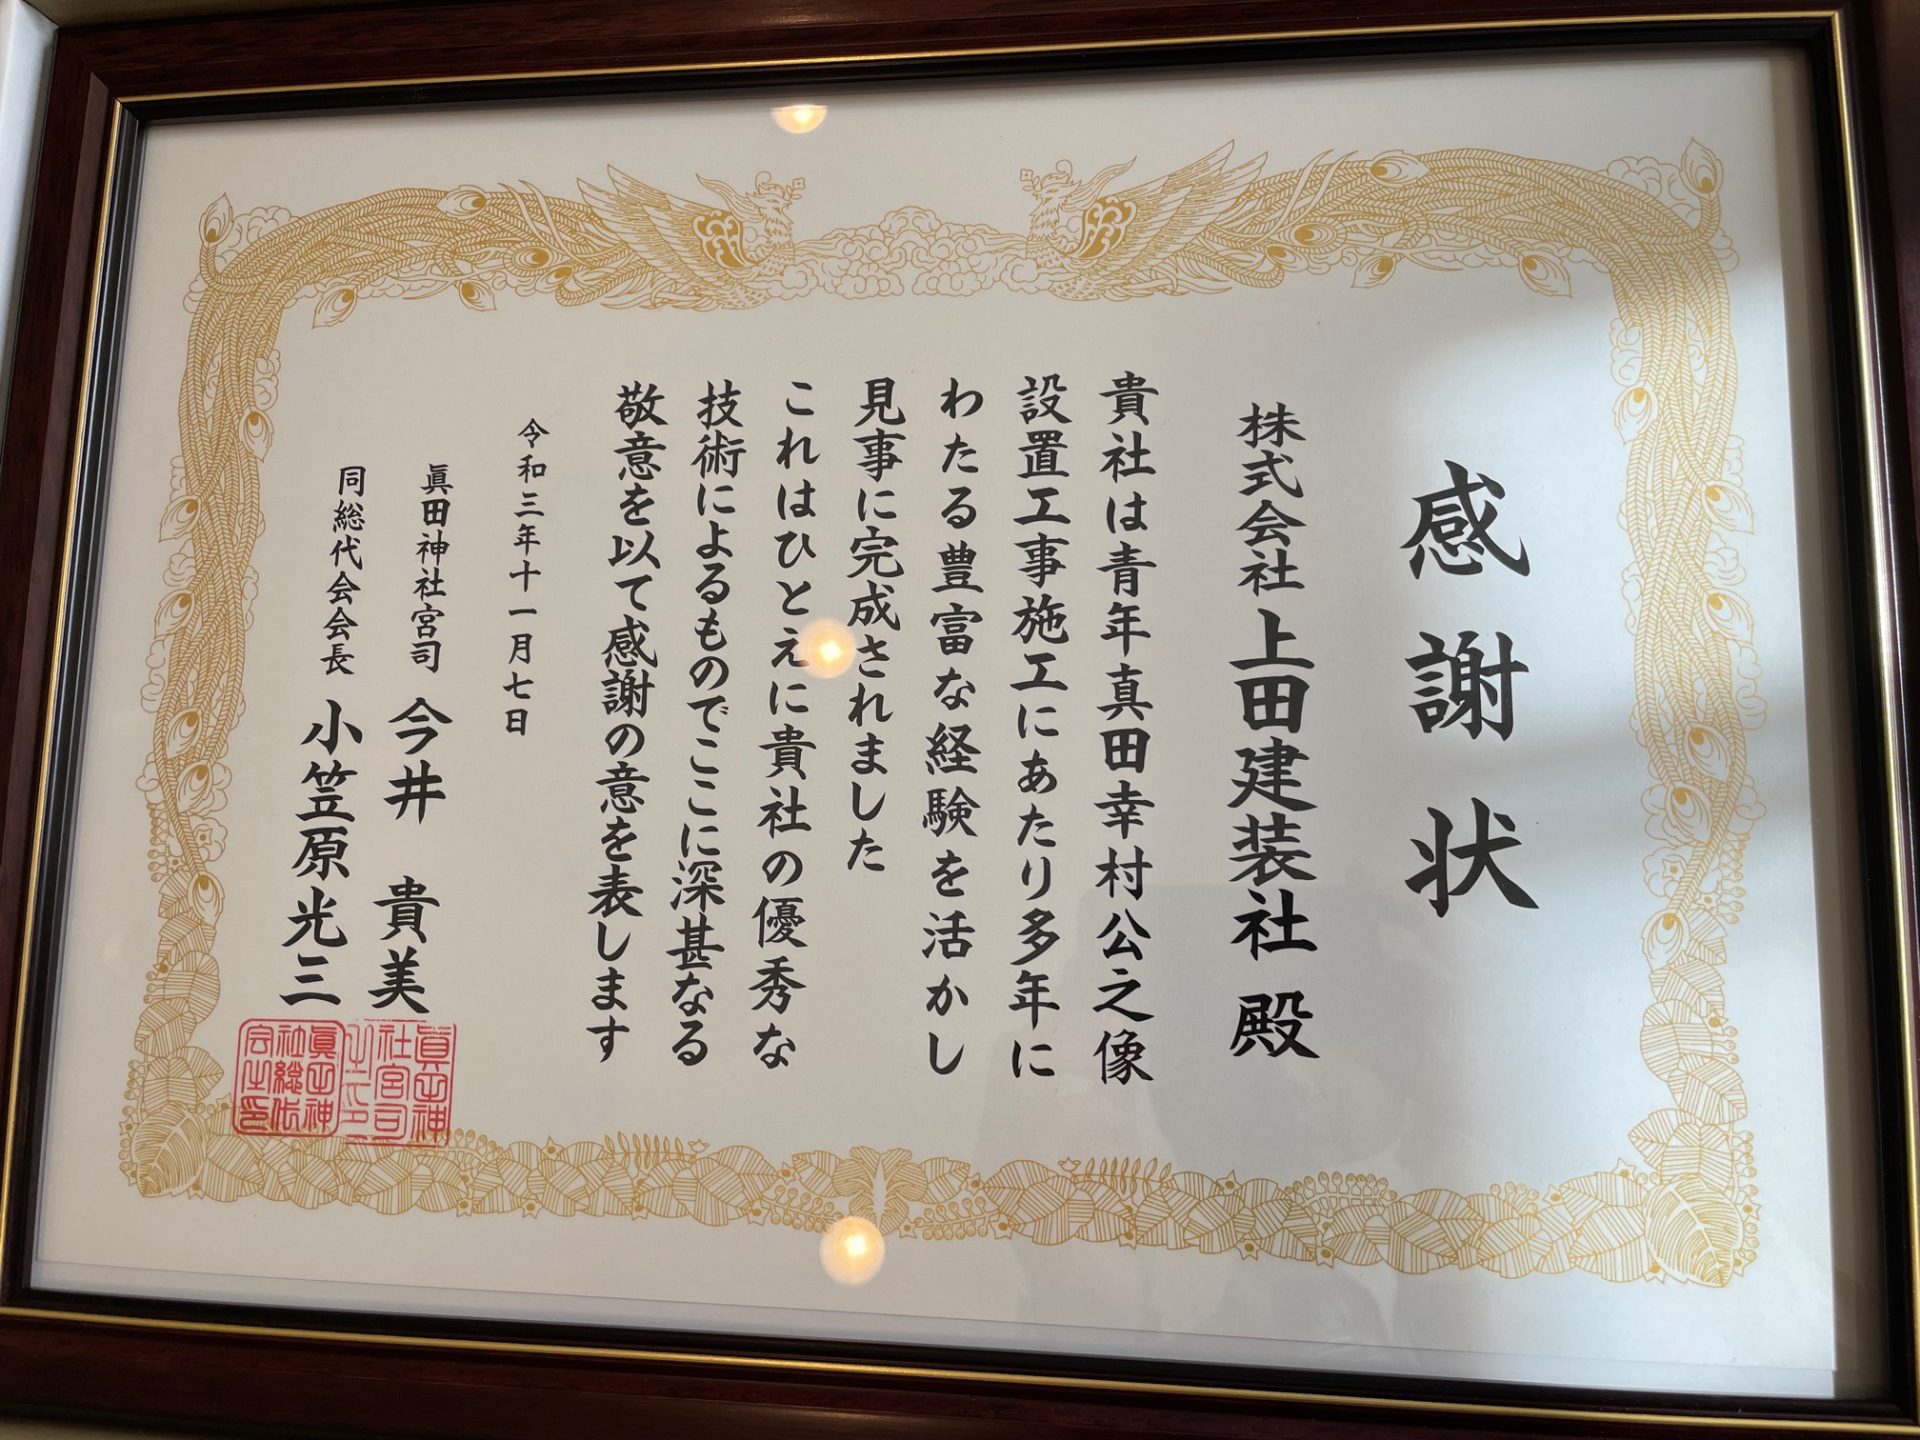 感謝状
株式会社 上田建装社 殿
貴社は青年真田幸村公之像
設置工事施工にあたり多年に
わたる豊富な経験を活かし
見事に完成されました
これはひとえに貴社の優秀な
技術によるものでここに深甚なる
敬意を以て感謝の意を表します
令和三年十一月七日
眞田神社宮司 今井 貴美
同総代会会長 小笠原光三
眞田神
社宮司
之印
眞田神
社総代
会之印